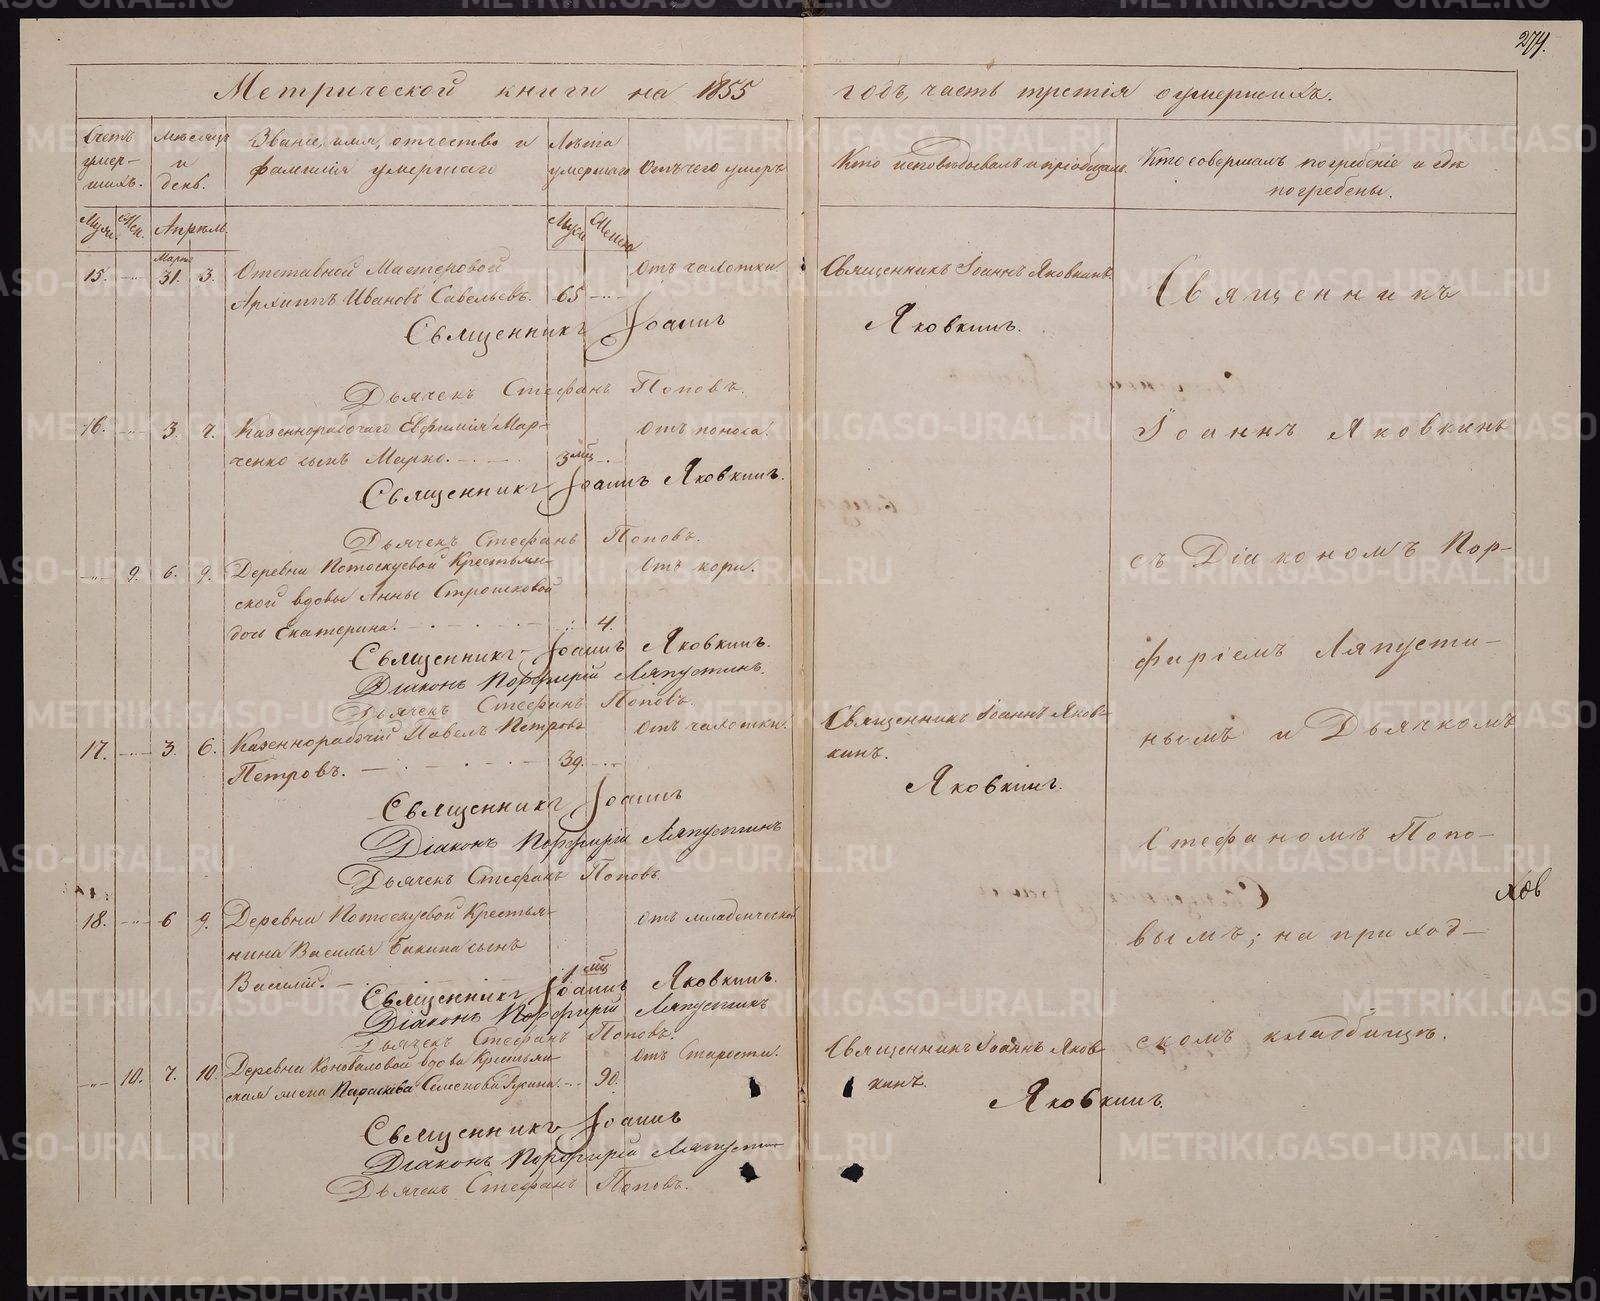 274.
Метрической книги на 1855
годъ, часть третія о умершихъ.
Счетъ умер-шихъ.
Мѣсяцъ и день.
Званіе, имя, отчество и фамилія умершаго
Лѣта умершаго
Отъ чего умеръ
Кто исповѣдывалъ и пріобщалъ.
Кто совершалъ погребеніе и гдѣ погребены.
Муж. Жен. Апрѣль
Муж. Женск
Марта
15. 31. 3. Отставной Мастеровой Отъ чахотки.
Архиппъ Ивановъ Савельевъ. 65
Священникъ Іоаннъ
Дьячекъ Стефанъ Поповъ.
16. 3. 7. Казеннорабочаго Евфимія Мар- Отъ поноса.
ченко сынъ Марко. 3 мѣц
Священникъ Іоаннъ Яковкинъ.
Дьячекъ Стефанъ Поповъ.
9. 6. 9. Деревни Потоскуевой Крестьян- Отъ кори.
ской вдовы Анны Строшковой
дочь Екатерина. 4.
Священникъ Іоаннъ Яковкинъ.
Діаконъ Порфирій Ляпустинъ.
Дьячекъ Стефанъ Поповъ.
17. 3. 6. Казеннорабочій Павелъ Петровъ Отъ чахотки.
Петровъ. 39.
Священникъ Іоаннъ
Діаконъ Порфирій Ляпустинъ
Дьячекъ Стефанъ Поповъ.
18. 6 9. Деревни Потоскуевой Крестья- Отъ младенческой
нина Василія Бакина сынъ
Василій. 1 мѣц
Священникъ Іоаннъ Яковкинъ.
Діаконъ Порфирій Ляпустинъ
Дьячекъ Стефанъ Поповъ.
10. 7. 10. Деревни Коноваловой вдова Крестьян- Отъ Старости.
ская жена Параскева Семенова 90.
Священникъ Іоаннъ
Діаконъ Порфирій Ляпустин
Дьячекъ Стефанъ Поповъ.
Священникъ Іоаннъ Яковкинъ.
Яковкинъ.
Священникъ Іоаннъ Яков-
кинъ.
Яковкинъ.
Священникъ Іоаннъ Яков-
кинъ.
Яковкинъ.
Священникъ
Іоаннъ Яковкинъ
съ Діакономъ Пор-
фиріемъ Ляпусти-
нымъ и Дьячкомъ
Стефаномъ Попо-
вымъ; на приход-
скомъ кладбищѣ.
METRIKI.GASO-URAL.RU